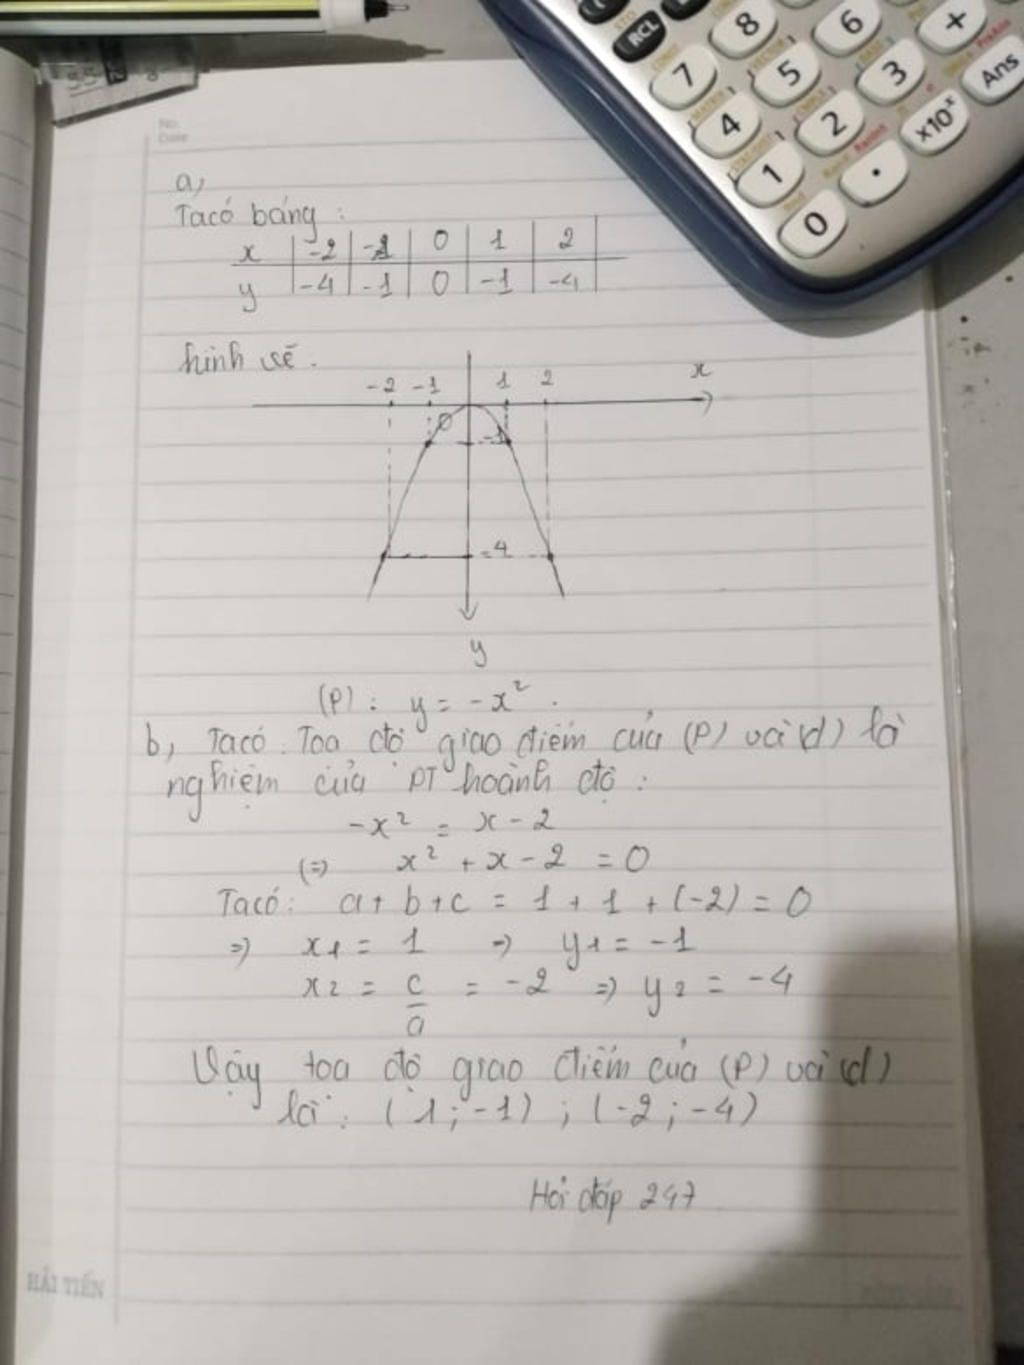 RCL
8
6
+
7
5
3
Ans
4
2
x10ˣ
1
.
0
No.
Date
a,
Ta có bảng :
x | -2 | -1 | 0 | 1 | 2 |
y | -4 | -1 | 0 | -1 | -4 |
hình vẽ.
-2 -1 1 2 x
0 -1
-4
y
(P) : y = -x² .
b, Ta có : Tọa độ giao điểm của (P) và (d) là
nghiệm của PT hoành độ :
-x² = x - 2
(=) x² + x - 2 = 0
Ta có: a + b + c = 1 + 1 + (-2) = 0
=) x1 = 1 =) y1 = -1
x2 = c/a = -2 =) y2 = -4
Vậy tọa độ giao điểm của (P) và (d)
là : (1 ; -1) ; (-2 ; -4)
Hỏi đáp 247
HẢI TIẾN